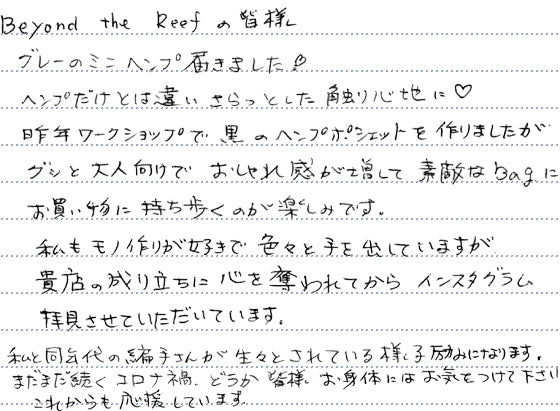 Beyond the Reefの皆様
グレーのミニヘンプ届きました!
ヘンプだけとは違いさらっとした触り心地に♡
昨年ワークショップで黒のヘンプポシェットを作りましたが
グンと大人向けでおしゃれ感が増して素敵なBagに
お買い物に持ち歩くのが楽しみです。
私もモノ作りが好きで色々と手を出していますが
貴店の成り立ちに心を奪われてからインスタグラム
拝見させていただいています。
私と同年代の編子さんが生々とされている様子励みになります。
まだまだ続くコロナ禍、どうか皆様お身体にはお気をつけて下さい
これからも応援しています。